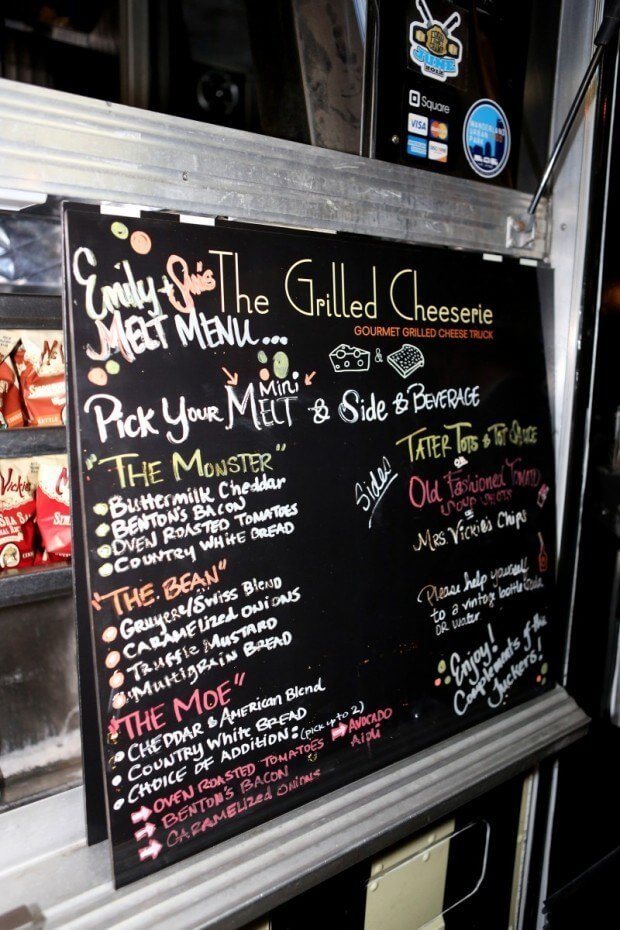 JUNE
2012
Square
VISA
MasterCard
DISCOVER
WANDERLAND
URBAN
PARK
Emily + Jus's
The Grilled Cheeserie
GOURMET GRILLED CHEESE TRUCK
MELT MENU...
&
Pick Your Mini MELT & Side & BEVERAGE
"THE MONSTER"
Buttermilk Cheddar
BENTON'S BACON
OVEN ROASTED TOMATOES
COUNTRY WHITE BREAD
"THE BEAN"
Gruyere/Swiss Blend
CARAMELIZED ONIONS
TRUFFLE MUSTARD
MULTIGRAIN BREAD
"THE MOE"
CHEDDAR & AMERICAN Blend
COUNTRY WHITE BREAD
CHOICE OF ADDITION: (pick up to 2)
OVEN ROASTED TOMATOES
BENTON'S BACON
CARAMELIZED ONIONS
AVOCADO
Aioli
Sides
TATER TOTS & TOT SAUCE
OR
Old Fashioned TOMATO
SOUP SHOTS
OR
MRS VICKIE'S CHIPS
Please help yourself
to a vintage bottle Cola
OR water
Enjoy!
Compliments of the
Juckers!
Vickie